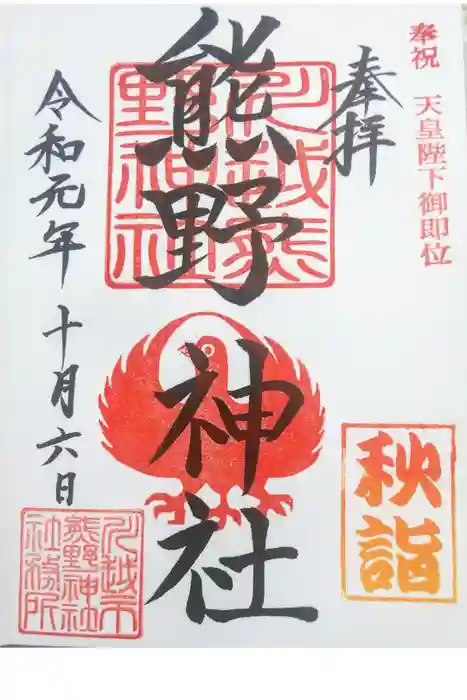 奉祝 天皇陛下御即位
奉拝
川越熊
野神社
熊野神社
秋詣
令和元年 十月六日
川越市
熊野神社
社務所